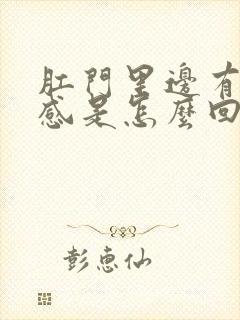 肛門里邊有
感是怎麼回
彭惠仙